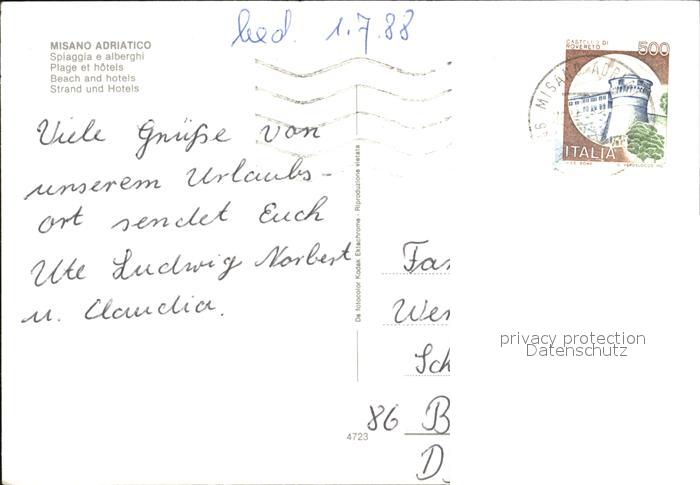 MISANO ADRIATICO
Spiaggia e alberghi
Plage et hôtels
Beach and hotels
Strand und Hotels
bed. 1.7.88
CASTELLO DI
ROVERETO
500
MISANO ADR
ITALIA
Viele Grüße von
unserem Urlaubs-
ort sendet Euch
Ute Ludwig Norbert
u. Claudia.
De fotocolor Kodak Ektachrome - Riproduzione vietata
Fam
Wer
Sch
86 B
D
4723
privacy protection
Datenschutz